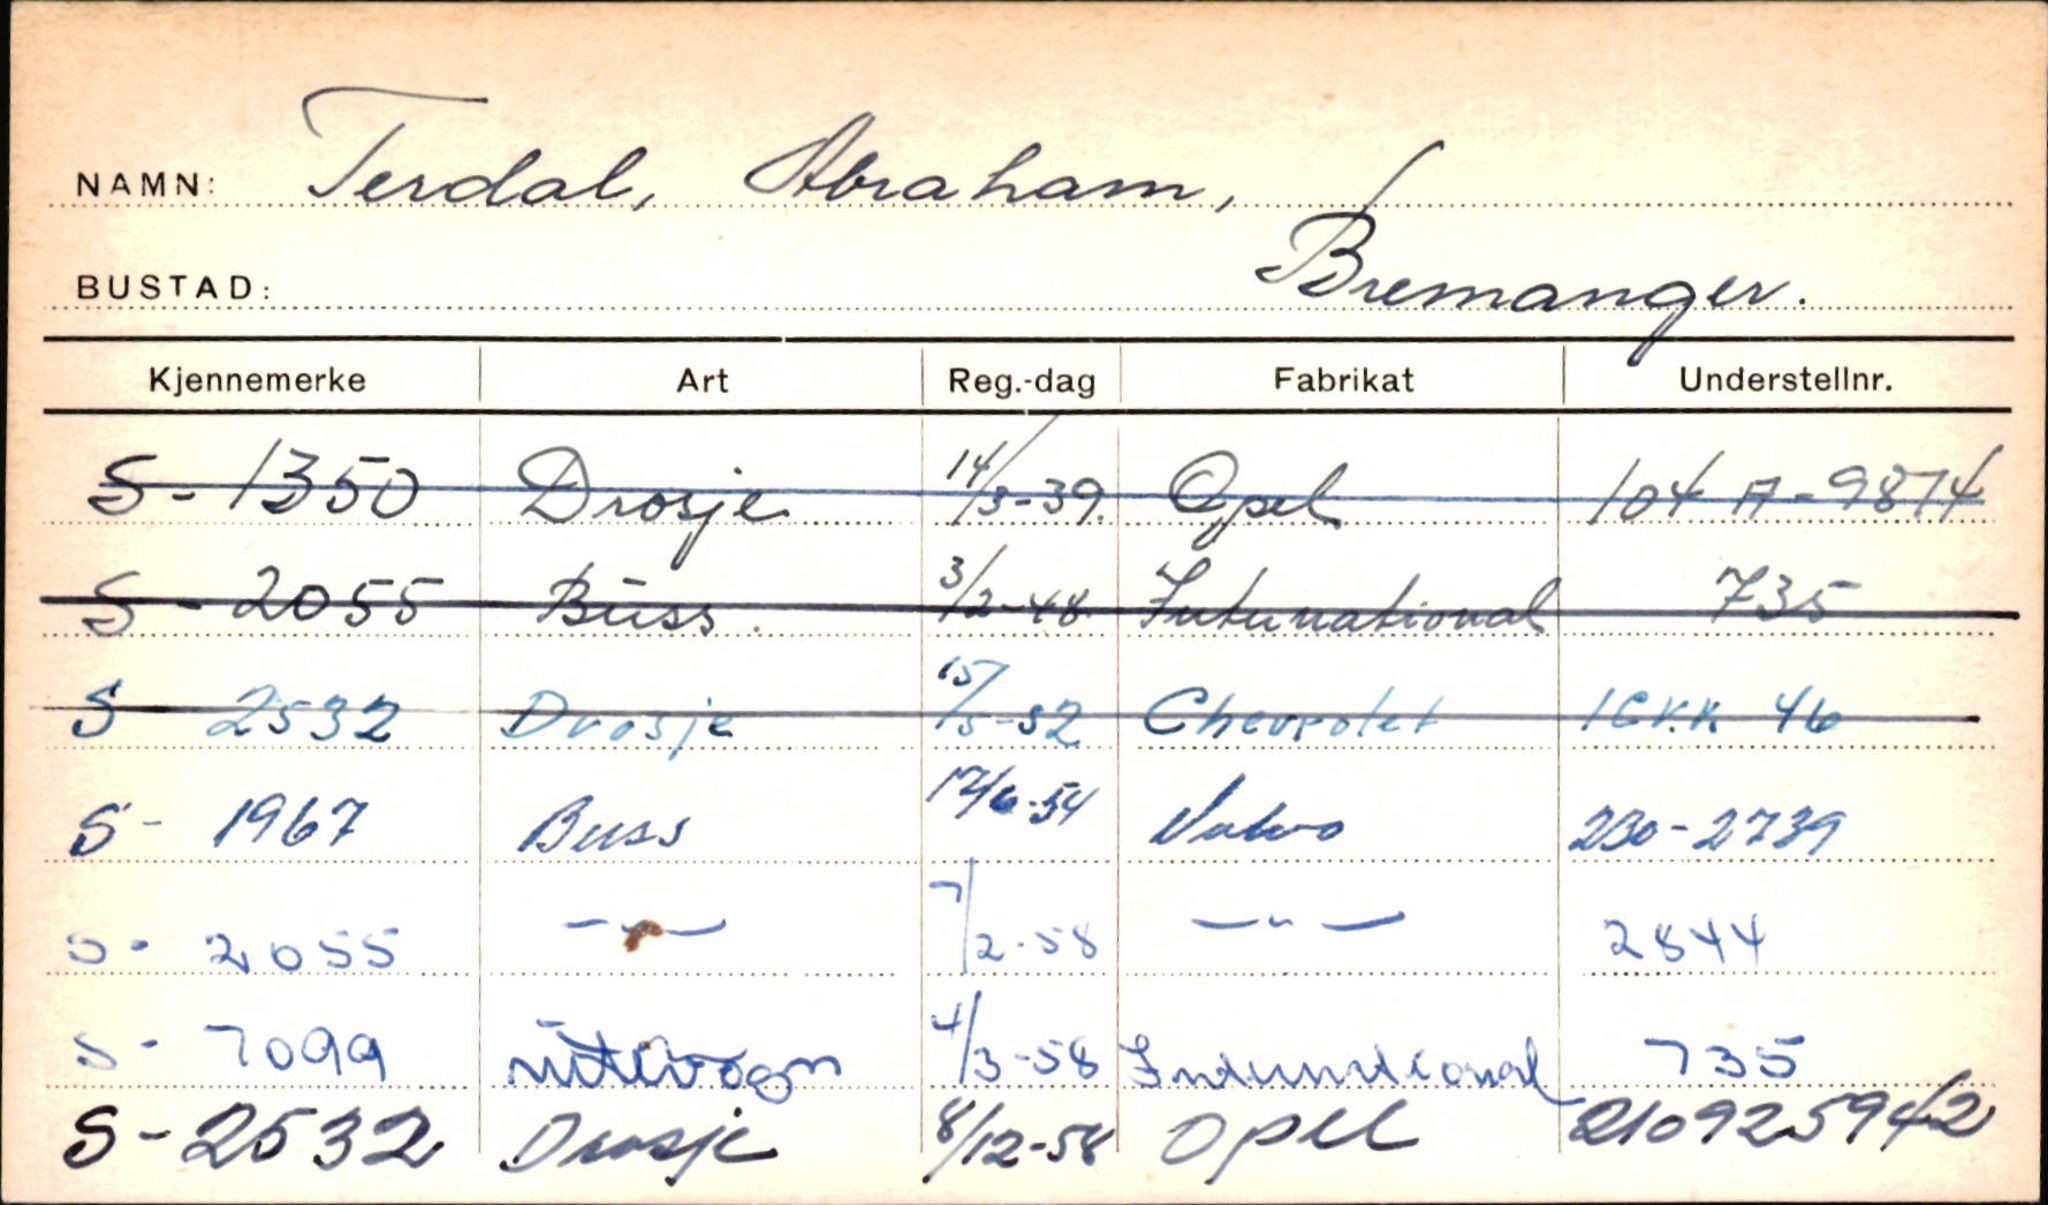 NAMN: Terdal, Abraham,
BUSTAD: Bremanger.
Kjennemerke Art Reg.-dag Fabrikat Understellnr.
S- 1350 Drosje 14/5-39. Opel 104 A-9874
S - 2055 Buss. 3/2-48 International 735
S 2532 Drosje 15/5-52 Chevrolet 1CKK 46
S- 1967 Buss 17/6-54 Volvo 230-2739
S- 2055 —"— 7/2-58 —"— 2844
S- 7099 4/3-58 International 735
S-2532 Drosje 8/12-58 Opel 210925942